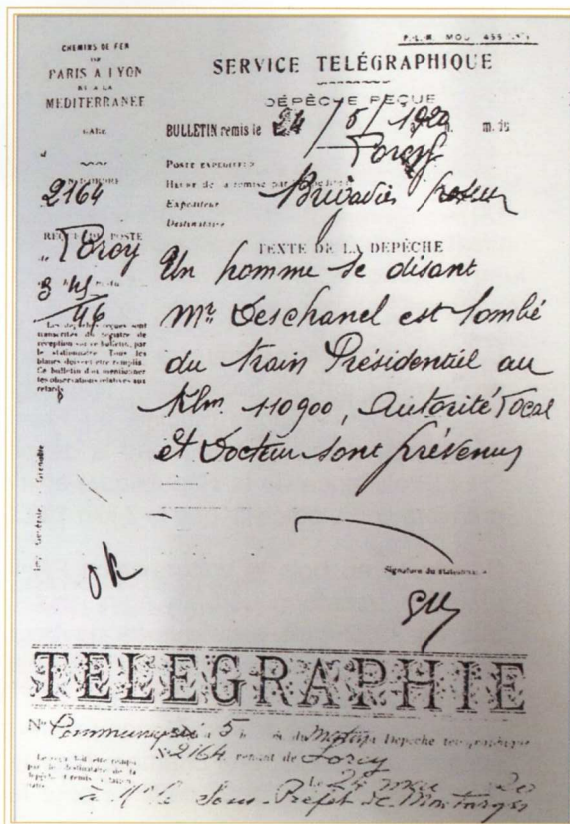 P.L.M. MOD. 455
CHEMINS DE FER
DE
PARIS A LYON
ET A LA
MEDITERRANEE
GARE
d
2164
REÇUE DU POSTE
de Toroy
3 h 45
46
Les dépêches reçues sont
transcrites du registre de
réception sur ce bulletin, par
le stationnaire. Tous les
blancs doivent être remplis.
Ce bulletin doit mentionner
les observations relatives aux
retards
SERVICE TELÉGRAPHIQUE
DÉPÊCHE REÇUE
BULLETIN remis le 24/5/1920 h. m. du
POSTE EXPÉDITEUR Toroy
Heure de la remise par
Expéditeur
Destinataire
TEXTE DE LA DEPÊCHE
Un homme se disant
Mr Deschanel est tombé
du train Présidentiel au
Klm. 110900, Autorité local
et Docteur sont prévenus
OK
Signature du stationnaire
TELEGRAPHIE
No Communiqué à 5 h du Matin Dépêche télégraphique
No 2164 venant de Lorcy
Le 24 mai 20
à Mr le Sous-Préfet de Montargis